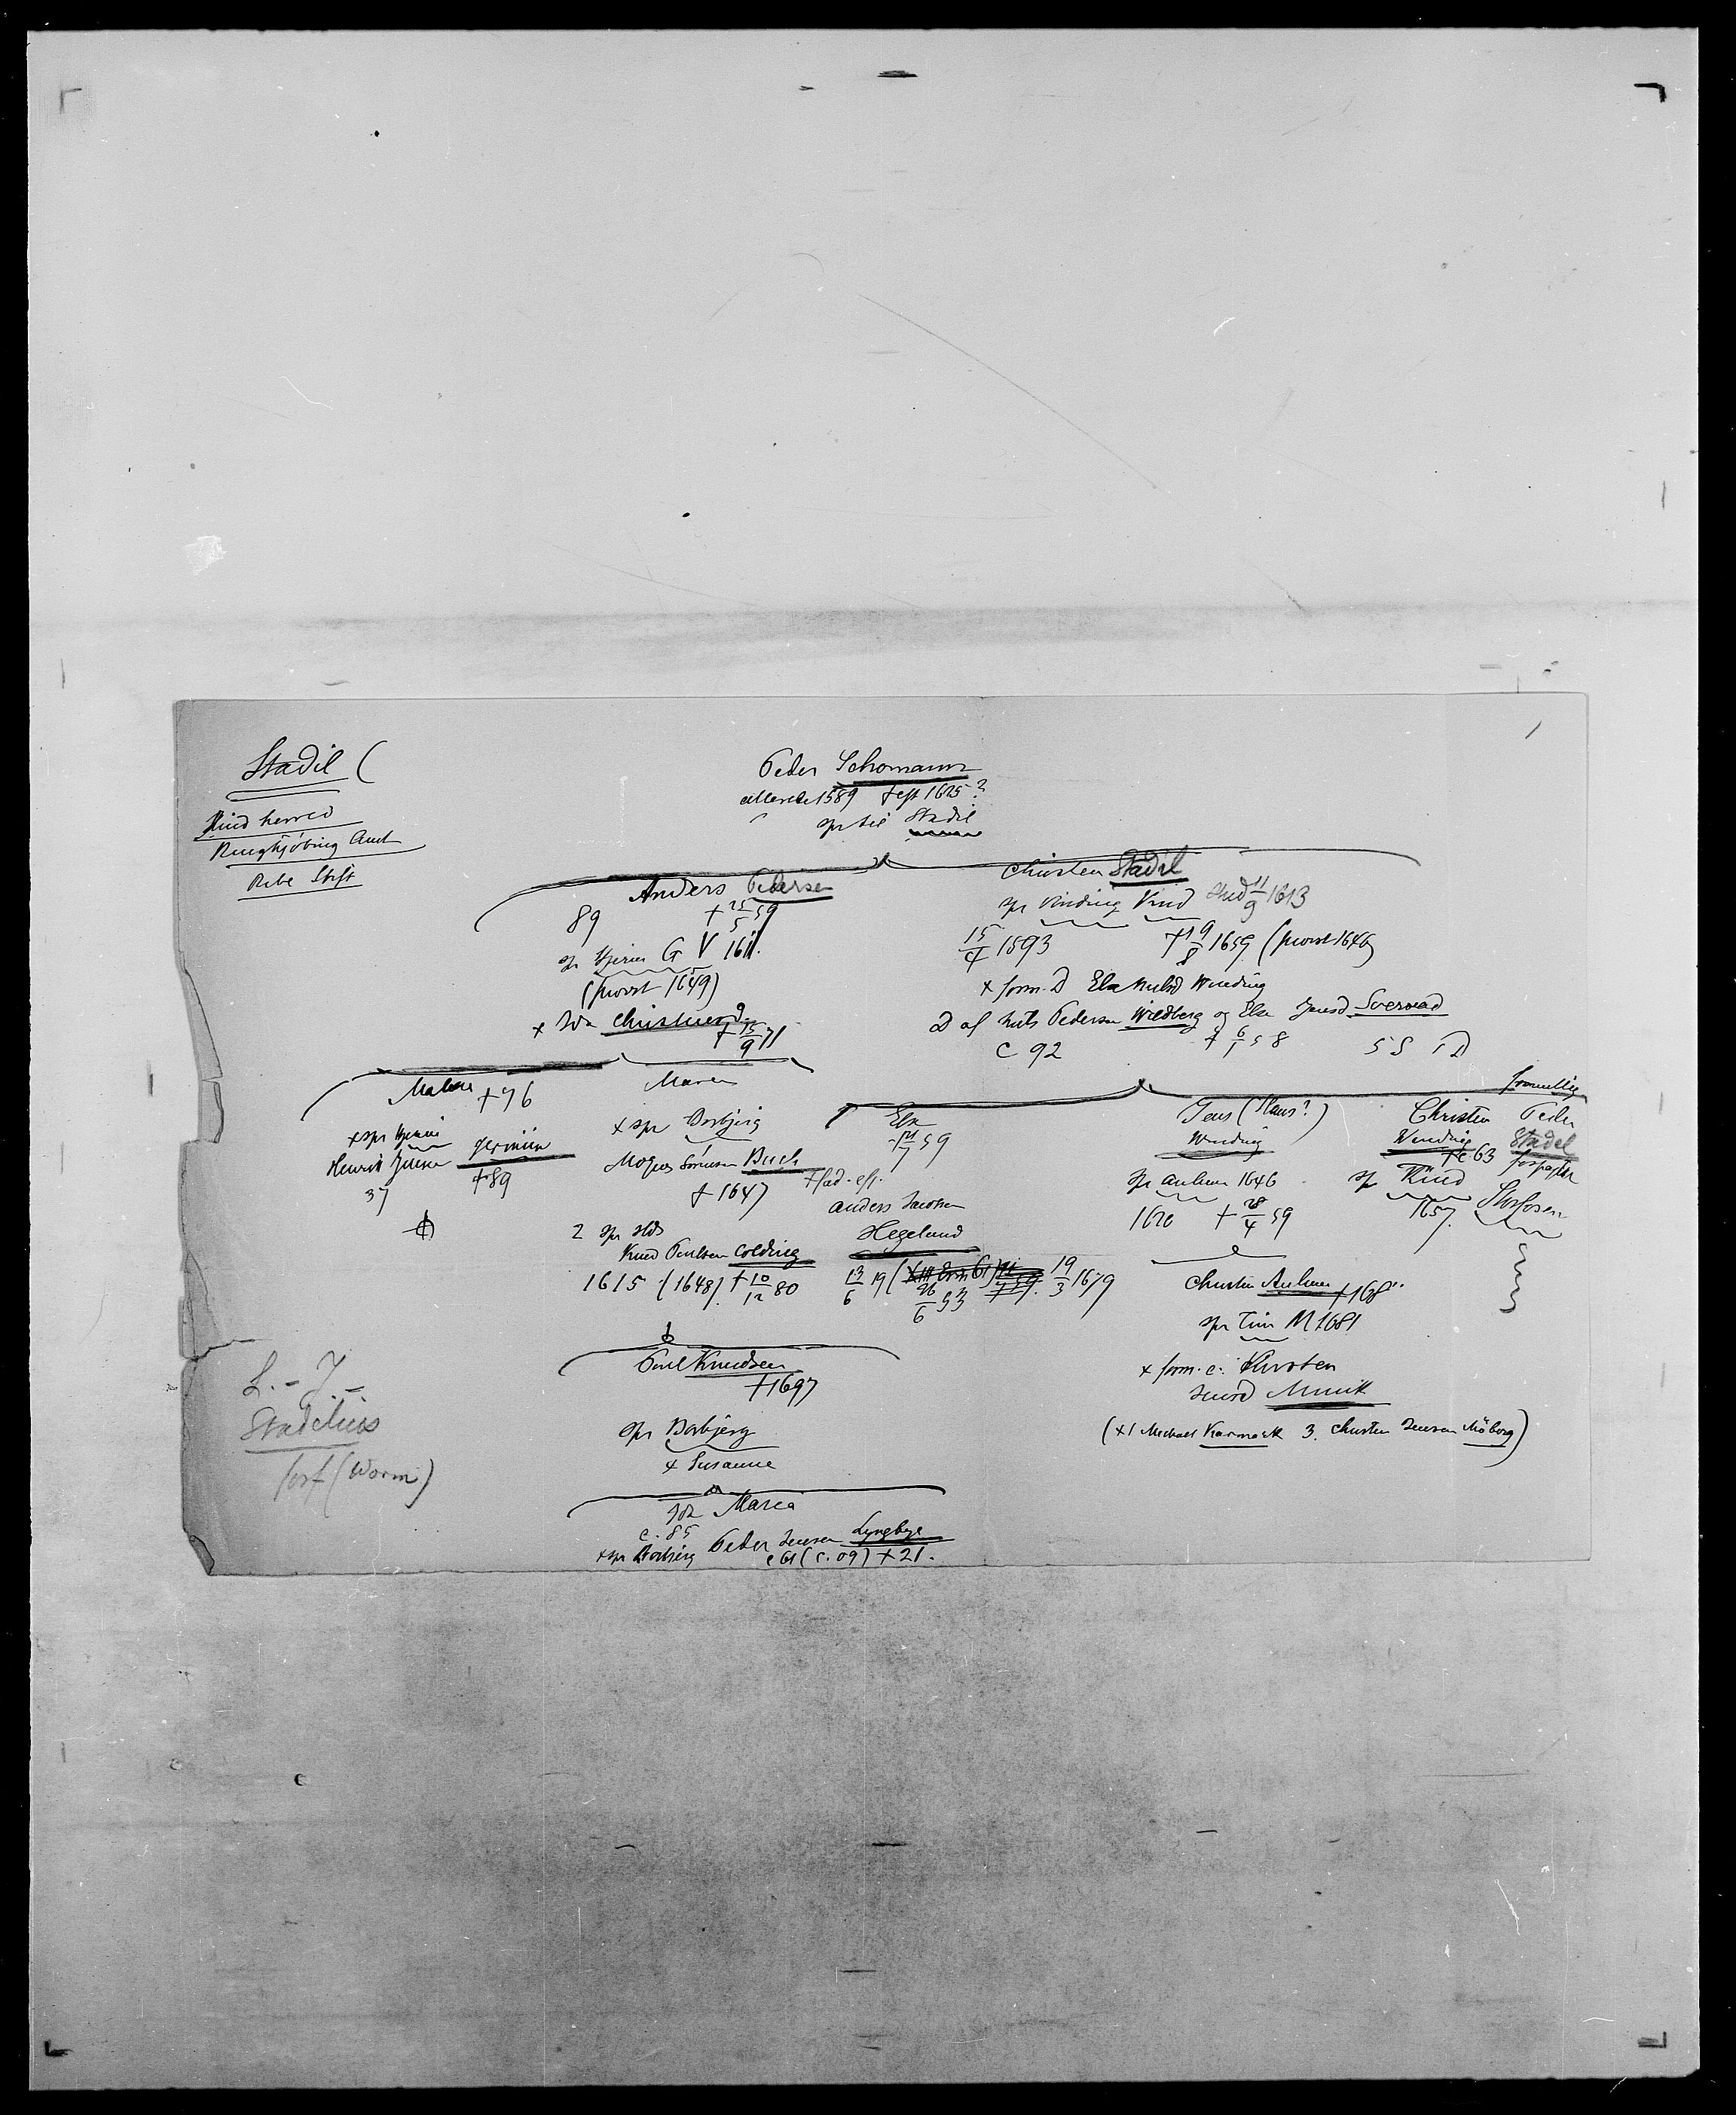 Stadil (
Hind herred
Ringkjöbing Amt
Ribe Stift
Peder Schomann
allerede 1589 † eft 1625?
spr til Stadil
Anders Pedersen
89 † 25/5 59
sp Hjerm G V 1611.
(provst 1649)
x Ida Christensd.
† 15/9 71
Christen Stadil
spr Vinding Vind Stud 11/9 1613
15/4 1593 † 19/8 1659 (provst 1646)
x form. D Else Nielsd Winding
D af Niels Pedersen Wildberg og Else Jensd Soervad
c 92 † 6/1 58 5 S 1 D
Malene † 76
x spr Hjerm
Henrik Jensen Jermiin
37 † 89
Maren
x spr Borbjerg
Mogens Sörensen Buch
† 1647
2 spr stds
Knud Poulsen Colding
1615 (1648) † 10/12 80
Else
† 21/7 59
† fad. eff.
Anders Jacobsen
Hegelund
13/6 19 ( 26/6 53 19/3 1679
Jens (Hans?)
Winding
spr Aulum 1646
1620 † 28/4 59
Christen
Winding
† c 63
sp Vind
1657.
formentlig
Peder
Stadel
forpagter
Christen Aulum † 168..
spr Tim M 1681
x form. e. Kirsten
Jensd Munk
(x 1 Michael Karmark 3. Christen Jensen Möborg)
Poul Knudsen
† 1697
spr Borbjerg
x Susanne
Ida Maria
c. 85
x spr Borbjerg Peder Jensen Lyngbye
c 61 (c. 09) † 21.
L. - J. -
Stadelius
forf (Worm)